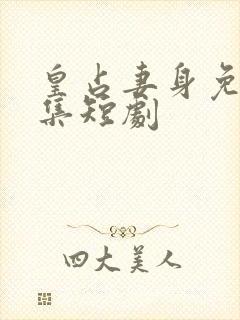 皇占妻身免
集短劇
四大美人